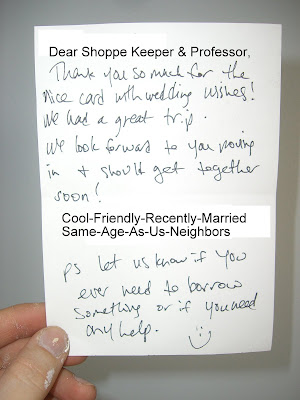 Dear Shoppe Keeper & Professor,
Thank you so much for the
nice card with wedding wishes!
We had a great trip.
We look forward to you moving
in & should get together
soon!
Cool-Friendly-Recently-Married
Same-Age-As-Us-Neighbors
ps let us know if you
ever need to borrow
something or if you need
any help.